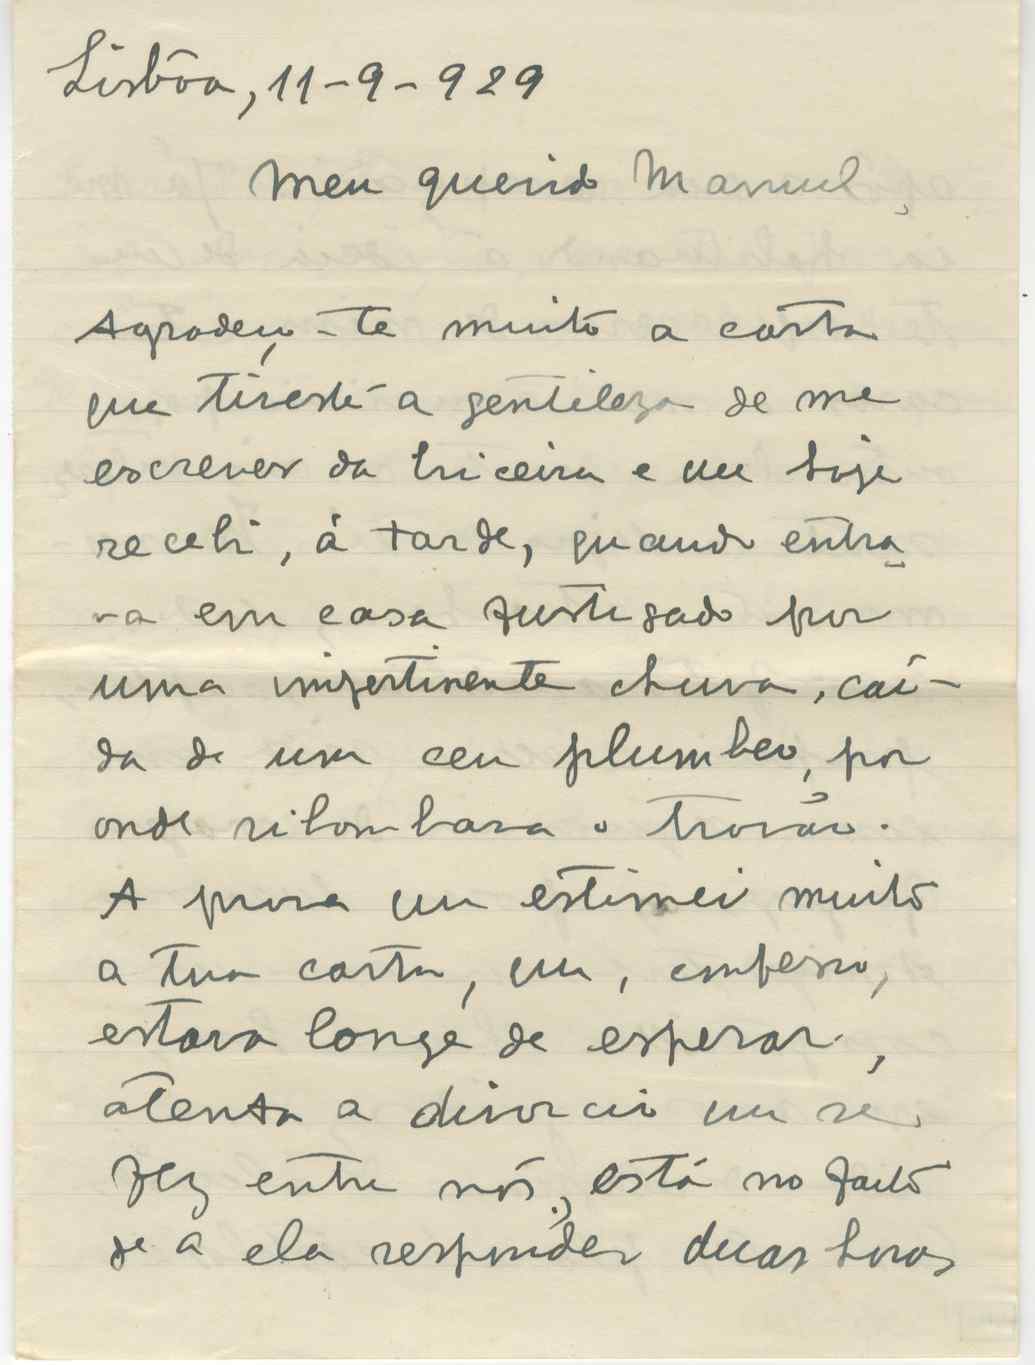 Lisbôa, 11-9-929
Meu querido Manuel,
Agradeço-te muito a carta
que tiveste a gentileza de me
escrever da Ericeira e que hoje
recebi, á tarde, quando entra-
va em casa fustigado por
uma impertinente chuva, caí-
da de um ceu plumbeo, por
onde ribombava o trovão.
A prova que estimei muito
a tua carta, que, confesso,
estava longe de esperar,
atenta a divorcio que se
fez entre nós, está no facto
de a ela responder duas horas